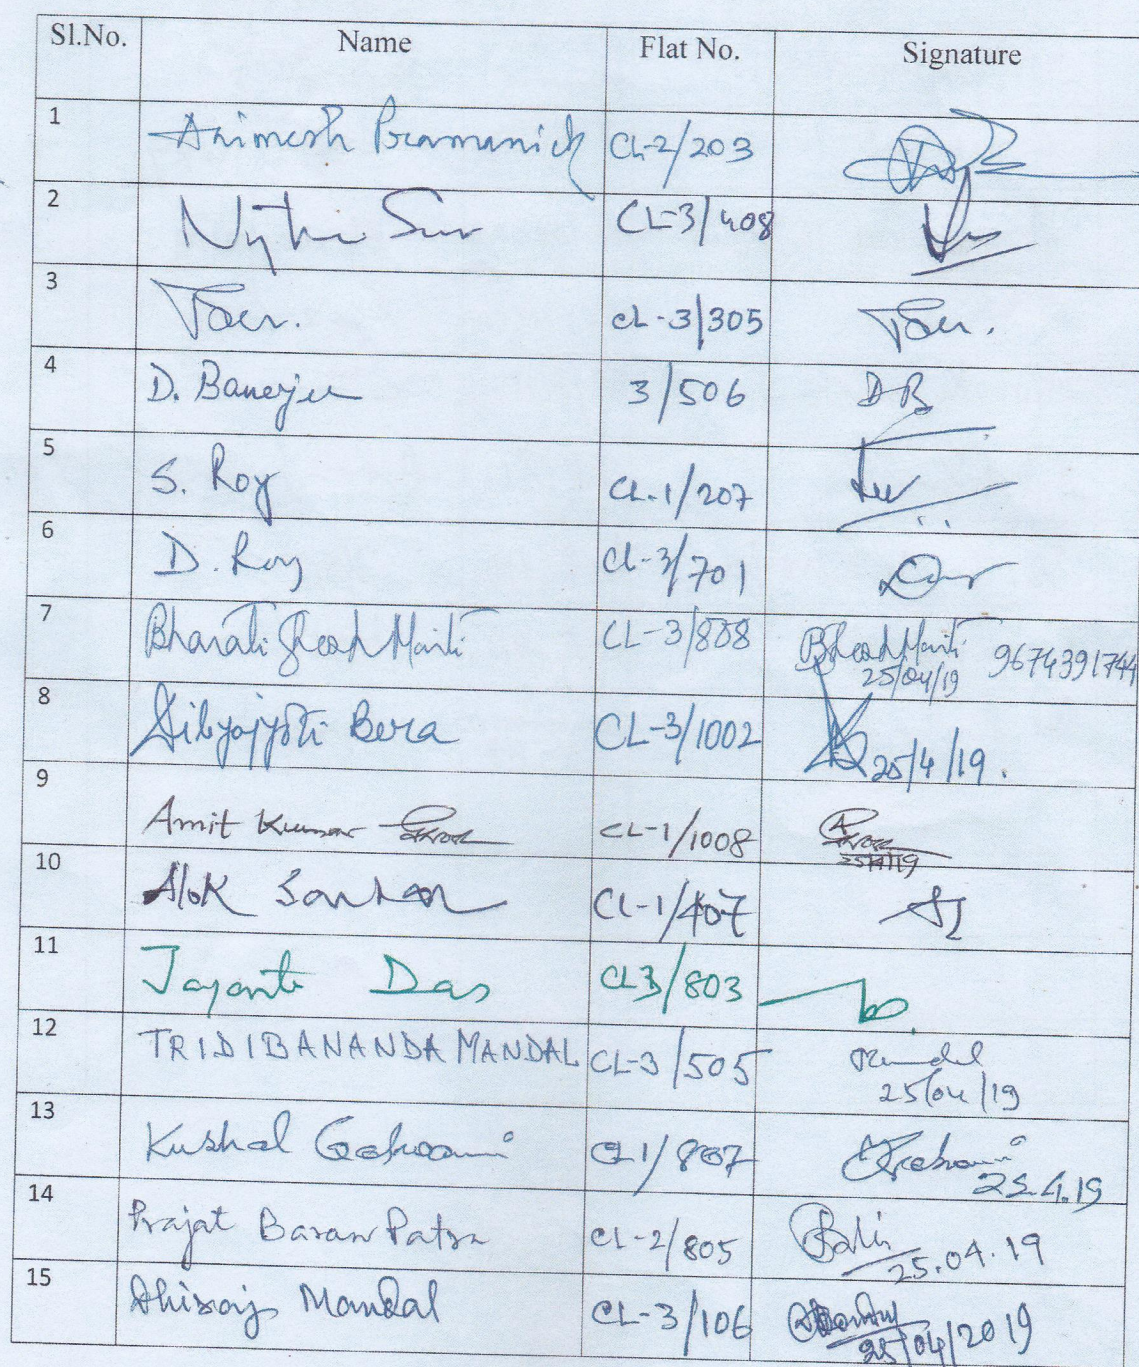 Sl.No. Name Flat No. Signature
1 Animesh Pramanick CL-2/203
2 CL-3/408
3 CL-3/305
4 D. Banerjee 3/506 DB
5 S. Roy CL-1/207
6 D. Roy CL-3/701
7 Bharati Ghosh Maiti CL-3/808 BGhosh Maiti 9674391744
25/04/19
8 Dibyajyoti Bera CL-3/1002 25/4/19.
9 Amit Kumar CL-1/1008
25/4/19
10 Alok Sarkar CL-1/407
11 Jayanta Das CL3/803
12 TRIDIBANANDA MANDAL CL-3/505 Mandal
25/04/19
13 Kushal Goswami CL1/807 Goswami
25.4.19
14 Prajat Baran Patra CL-2/805
25.04.19
15 Dhiraj Mondal CL-3/106
25/04/2019